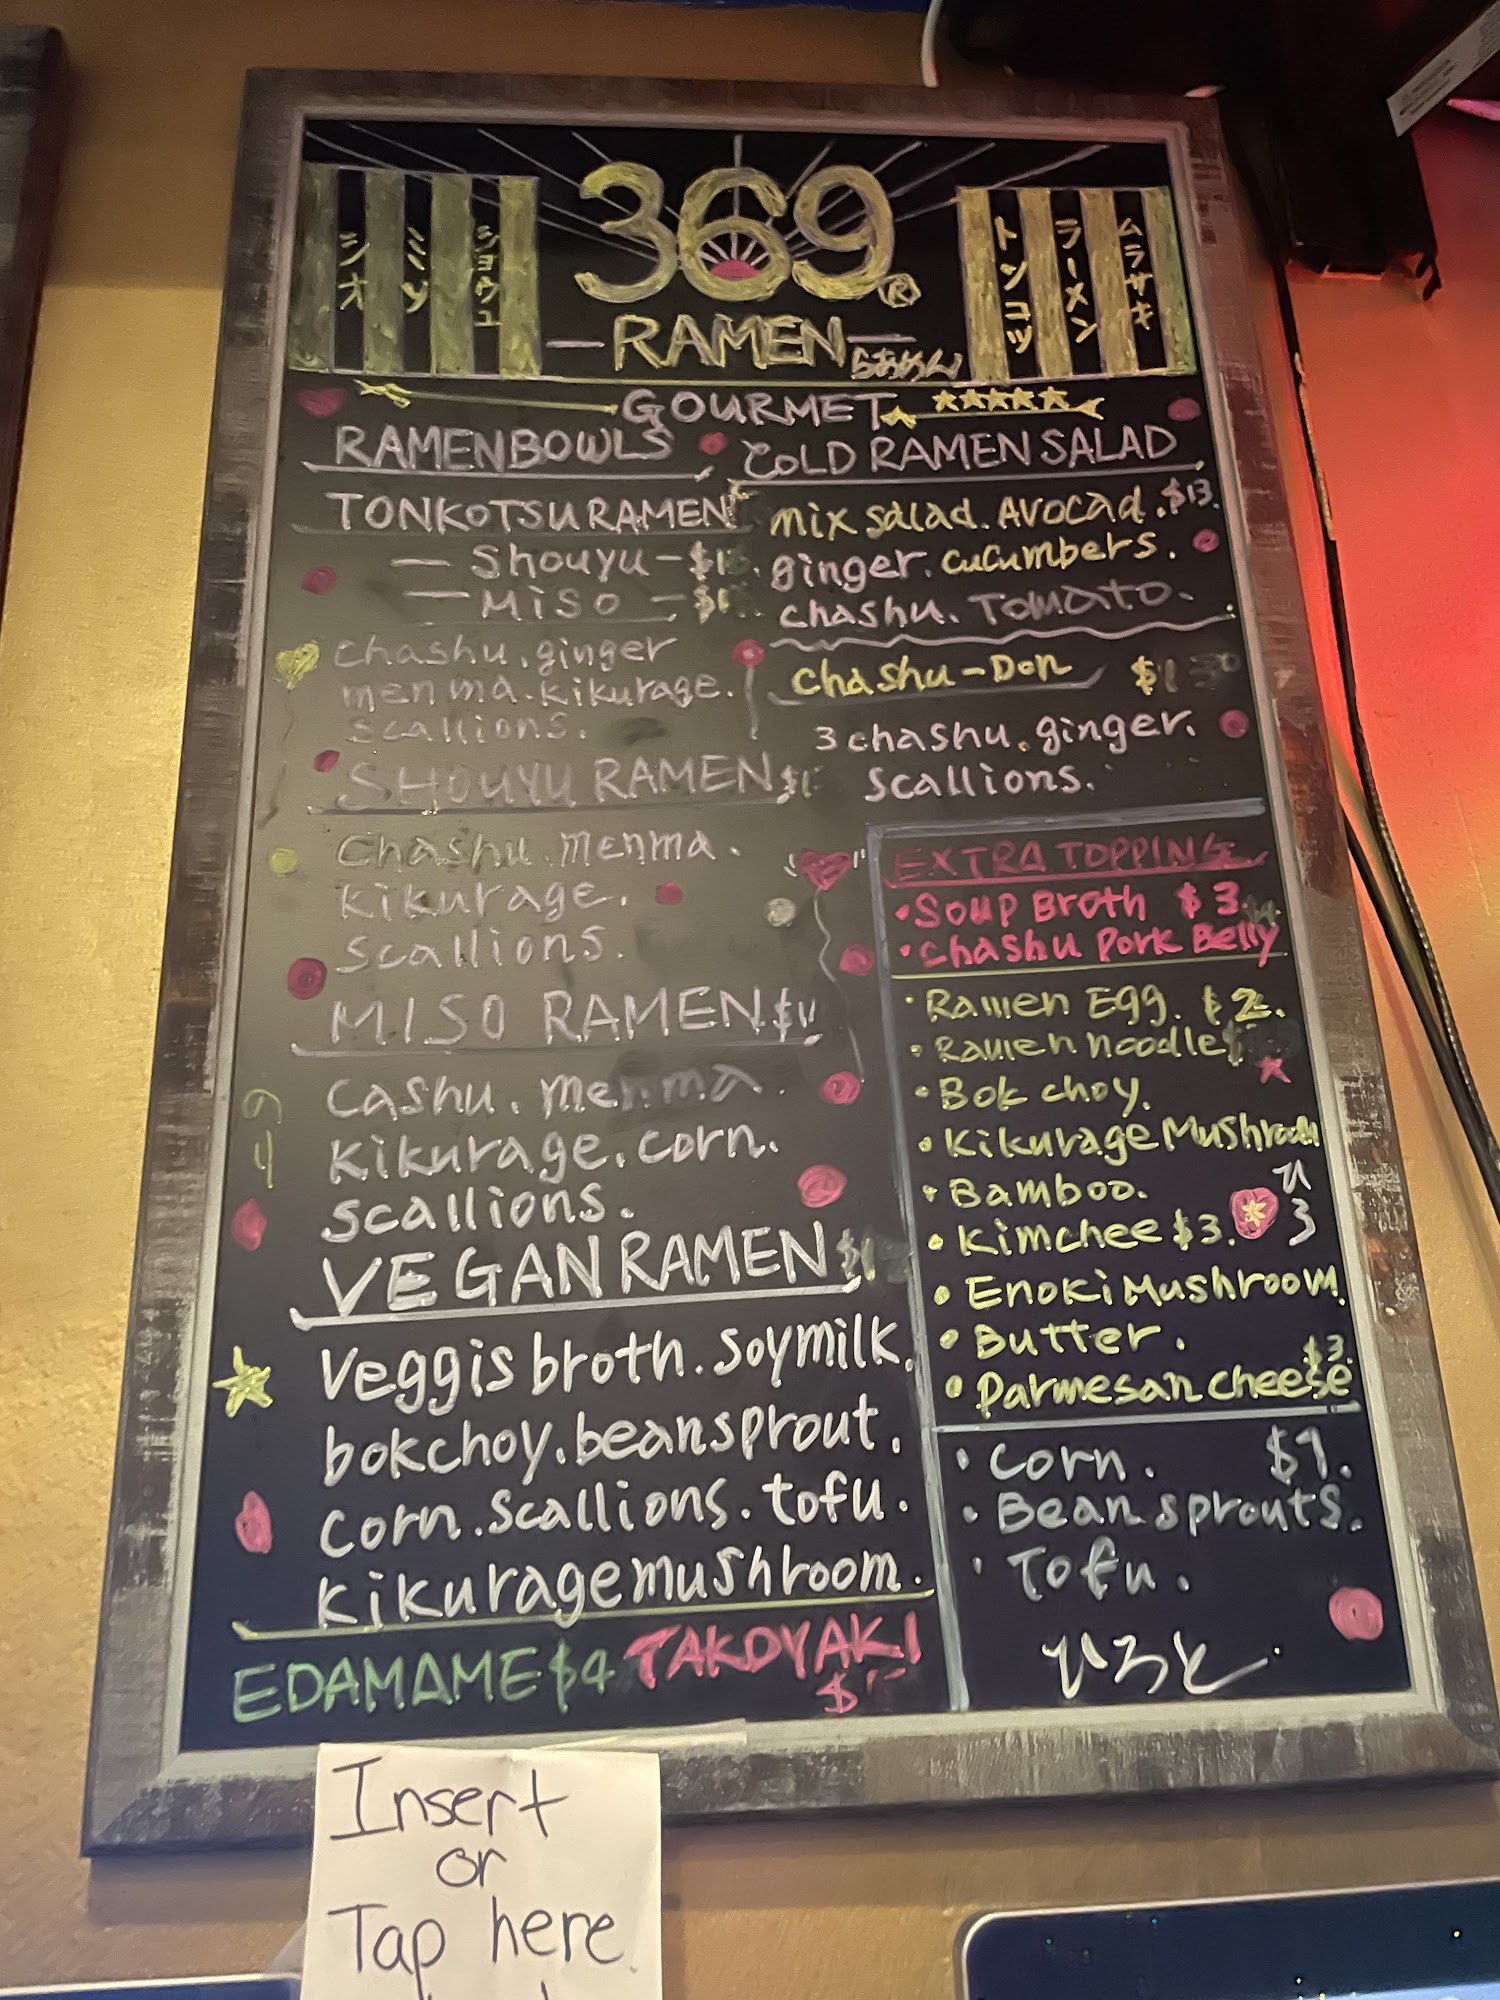 シオ
ミソ
ショウユ
369®
トンコツ
ラーメン
ムラサキ
RAMEN
らあめん
GOURMET
RAMEN BOWLS
TONKOTSU RAMEN
Shouyu
Miso
chashu. ginger
menma. kikurage.
scallions.
SHOUYU RAMEN
chashu. menma.
kikurage.
scallions.
MISO RAMEN
cashu. menma.
kikurage. corn.
scallions.
VEGAN RAMEN
veggis broth. soymilk.
bokchoy. beansprout.
corn. scallions. tofu.
kikurage mushroom.
EDAMAME $4 TAKOYAKI
$
COLD RAMEN SALAD
mix salad. Avocad. $13.
ginger. cucumbers.
chashu. Tomato.
chashu-Don
3 chashu. ginger.
scallions.
EXTRA TOPPING
• Soup Broth $3.
• chashu Pork Belly
• Ramen Egg. $2.
• Ramen noodle
• Bok choy.
• Kikurage Mushroom
• Bamboo.
• Kimchee $3.
• Enoki Mushroom.
• Butter.
$3.
• Parmesan cheese
• Corn. $1.
• Bean sprouts.
• Tofu.
ひろと
Insert
or
Tap here